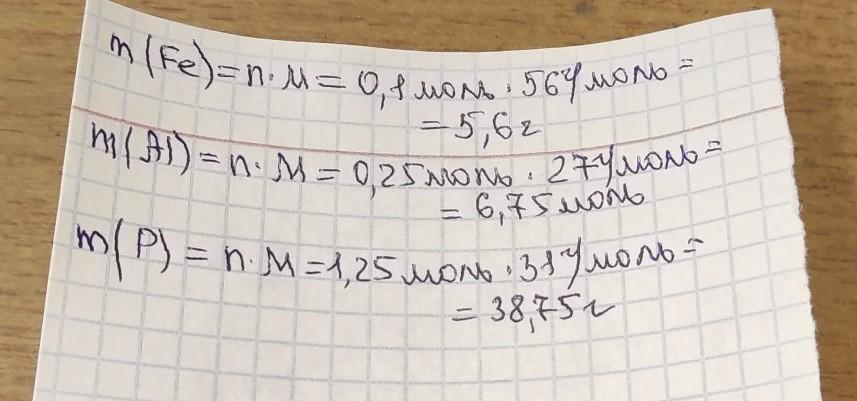 m(Fe)=n·M=0,1моль·56г/моль=
=5,6г
m(Al)=n·M=0,25моль·27г/моль=
=6,75моль
m(P)=n·M=1,25моль·31г/моль=
=38,75г